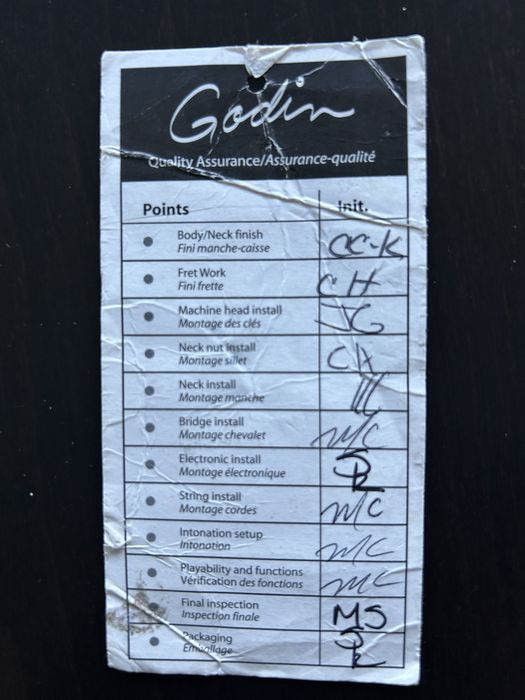 Godin
Quality Assurance/Assurance-qualité
Points Init.
Body/Neck finish CC-K
Fini manche-caisse
Fret Work CH
Fini frette
Machine head install JG
Montage des clés
Neck nut install CH
Montage sillet
Neck install
Montage manche
Bridge install MC
Montage chevalet
Electronic install
Montage électronique
String install MC
Montage cordes
Intonation setup MC
Intonation
Playability and functions MC
Vérification des fonctions
Final inspection MS
Inspection finale
Packaging
Emballage